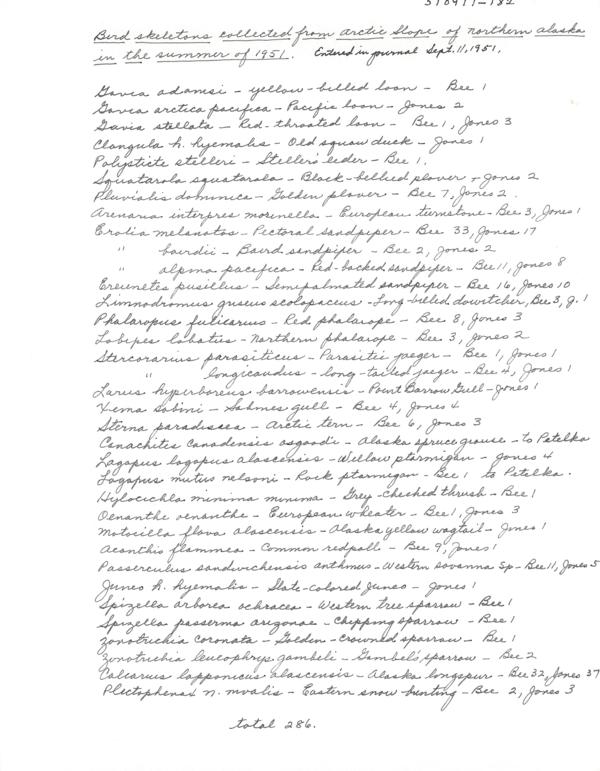 510911-182
Bird skeletons collected from Arctic Slope of northern Alaska
in the summer of 1951. Entered in journal Sept. 11, 1951.
Gavia adamsi - yellow-billed loon - Bee 1
Gavia arctica pacifica - Pacific loon - Jones 2
Gavia stellata - Red-throated loon - Bee 1, Jones 3
Clangula h. hyemalis - Old squaw duck - Jones 1
Polysticte stelleri - Steller's eider - Bee 1.
Squatarola squatarola - Black-bellied plover - Jones 2
Pluvialis dominica - Golden plover - Bee 7, Jones 2.
Arenaria interpres morinella - European turnstone - Bee 3, Jones 1
Erolia melanotos - Pectoral sandpiper - Bee 33, Jones 17
" bairdii - Baird sandpiper - Bee 2, Jones 2
" alpina pacifica - Red-backed sandpiper - Bee 11, Jones 8
Ereunetes pusillus - Semipalmated sandpiper - Bee 16, Jones 10
Limnodromus griseus scolopaceus - Long-billed dowitcher, Bee 3, J. 1
Phalaropus fulicarius - Red phalarope - Bee 8, Jones 3
Lobipes lobatus - Northern phalarope - Bee 3, Jones 2
Stercorarius parasiticus - Parasitic jaeger - Bee 1, Jones 1
" longicaudus - long-tailed jaeger - Bee 4, Jones 1
Larus hyperboreus barrowensis - Point Barrow Gull - Jones 1
Xema sabini - Sabines gull - Bee 4, Jones 4
Sterna paradisaea - Arctic tern - Bee 6, Jones 3
Canachites canadensis osgoodi - Alaska spruce grouse - to Petelka
Lagopus lagopus alascensis - Willow ptarmigan - Jones 4
Lagopus mutus nelsoni - Rock ptarmigan - Bee 1 to Petelka.
Hylocichla minima minima - Grey-cheeked thrush - Bee 1
Oenanthe oenanthe - European wheater - Bee 1, Jones 3
Motacilla flava alascensis - Alaska yellow wagtail - Jones 1
Acanthis flammea - Common redpoll - Bee 9, Jones 1
Passerculus sandwichensis anthinus - Western savanna Sp - Bee 11, Jones 5
Junco h. hyemalis - Slate-colored Junco - Jones 1
Spizella arborea ochracea - Western tree sparrow - Bee 1
Spizella passerina arizonae - Chipping sparrow - Bee 1
Zonotrichia coronata - Golden-crowned sparrow - Bee 1
Zonotrichia leucophrys gambeli - Gambel's sparrow - Bee 2
Calcarius lapponicus alascensis - Alaska longspur - Bee 32, Jones 37
Plectophenax n. nivalis - Eastern snow bunting - Bee 2, Jones 3
total 286.